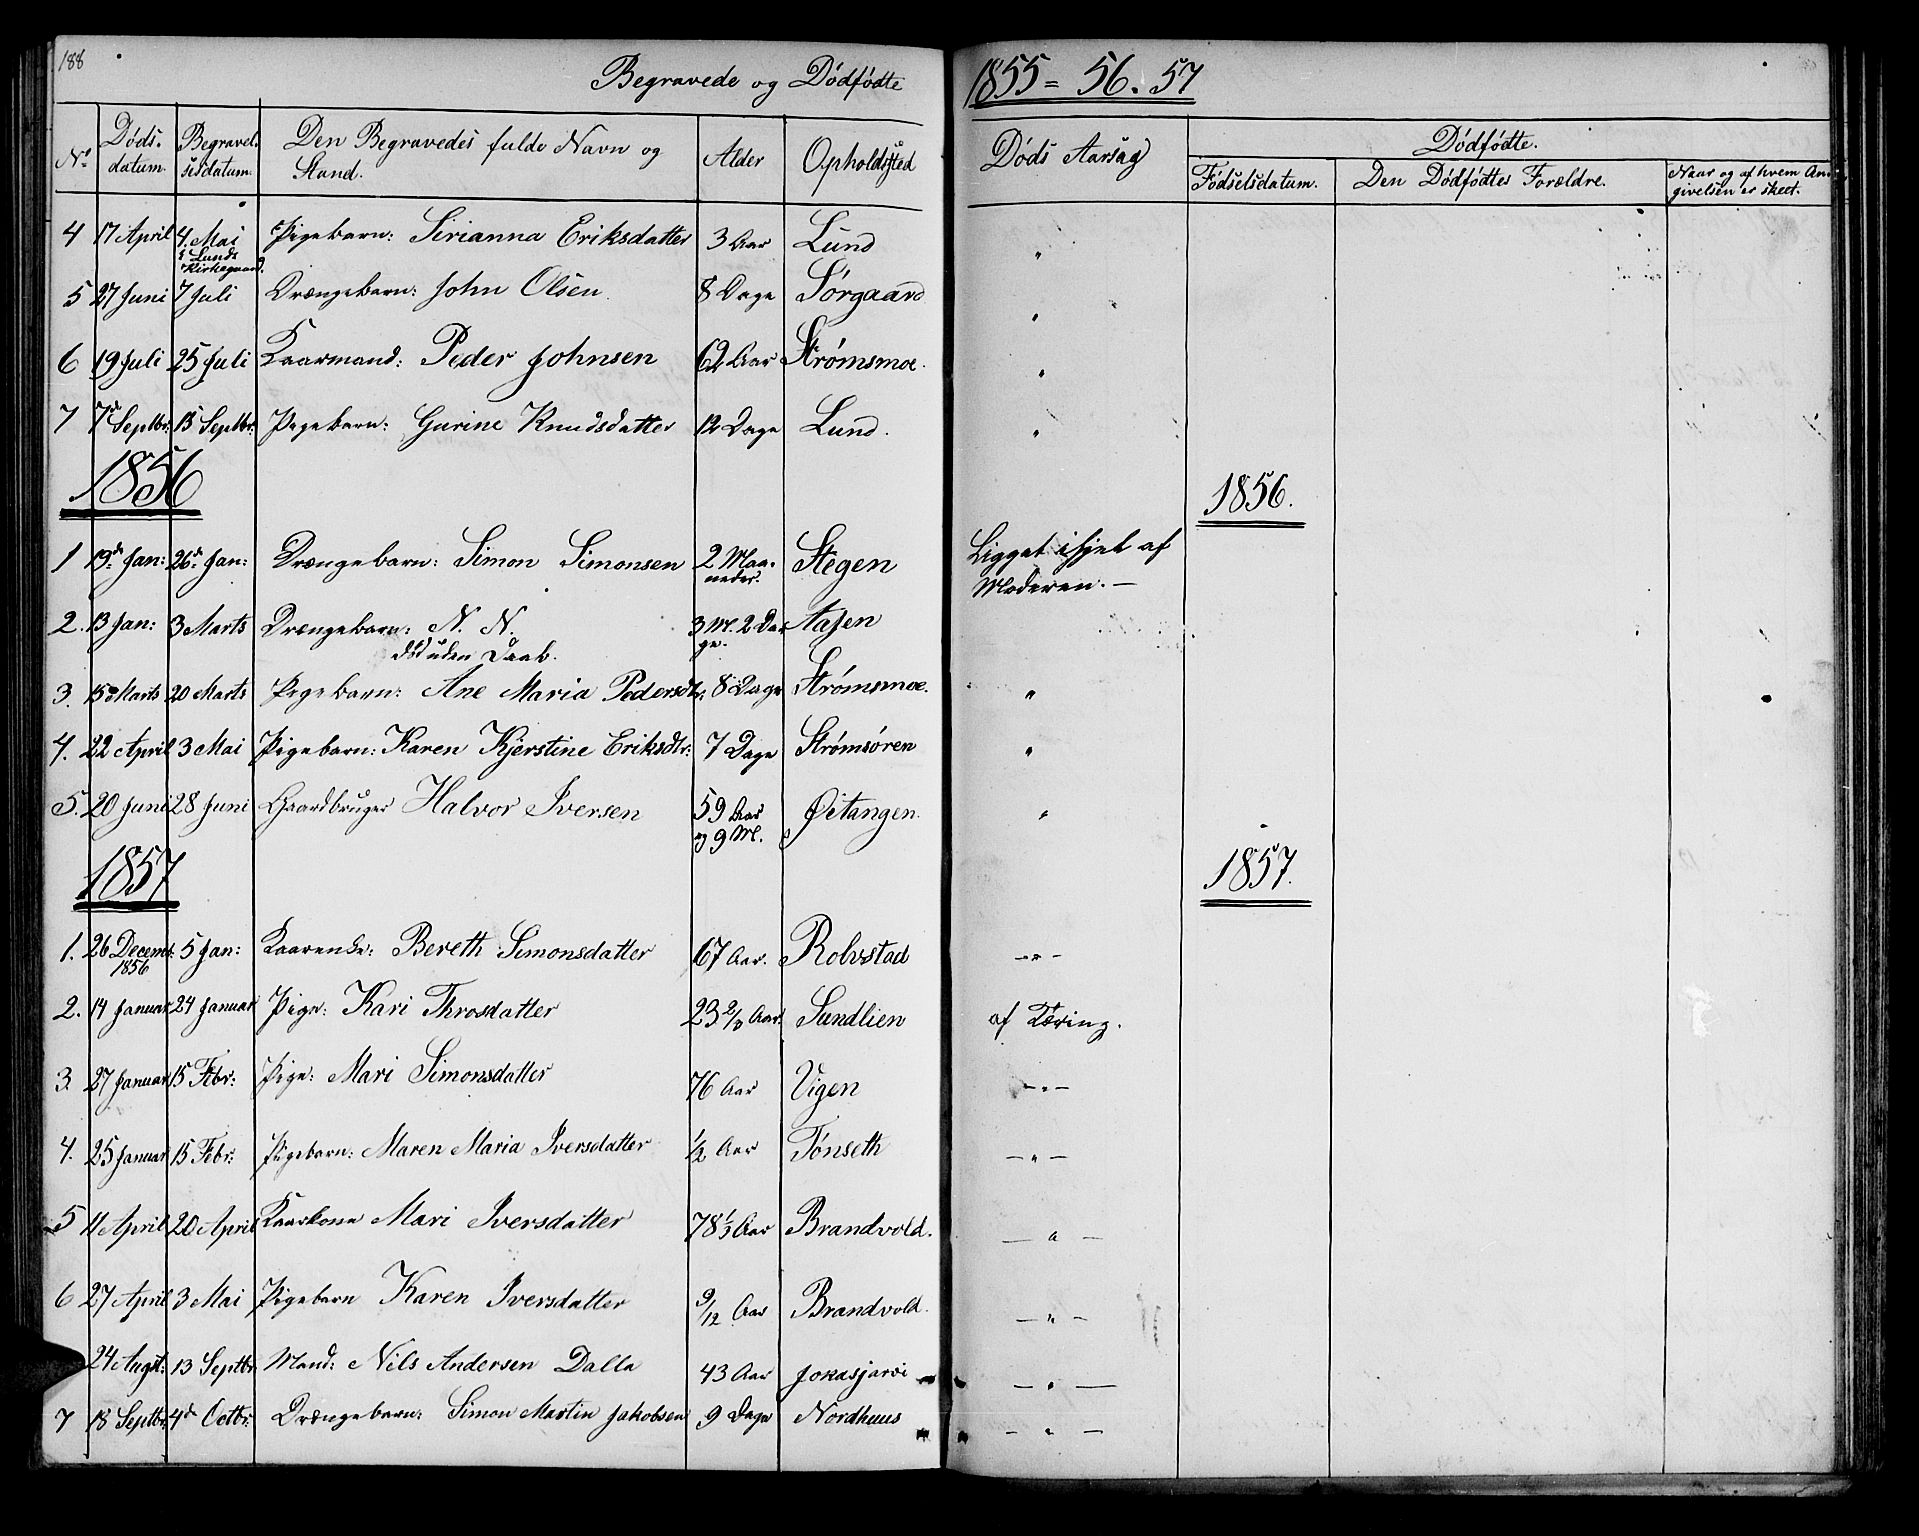 188
Begravede og Dødfødte 1855 = 56. 57
No Døds-datum. Begravel-sesdatum. Den Begravedes fulde Navn og Stand. Alder Opholdssted Døds Aarsag Dødfødte.
Fødselsdatum. Den Dødfødtes Forældre. Naar og af hvem Angivelsen er skeet.
4 17 April 4. Mai Pigebarn: Sirianna Eriksdatter 3 Aar Lund "
i Lunds
Kirkegaard.
5 27 Juni 7 Juli Drængebarn: John Olsen. 8 Dage Sørgaard "
6 19 Juli 25 Juli Kaarmand: Peder Johnsen 62 Aar Strømsmoe. "
7 7d Septbr: 15 Septbr: Pigebarn: Gurine Knudsdatter 12 Dage Lund. "
1856 1856.
1 19de Jan: 26de Jan: Drængebarn: Simon Simonsen 2 Maa-neder. Stegen Ligget ihjel af
Moderen. —
2. 13 Jan: 3 Marts Drængebarn: N. N. 3 M. 2 Da-ge. Aasen
død uden Daab.
3. 15 Marts 20 Marts Pigebarn: Ane Maria Pedersdtr: 8 Dage Strømsmoe. "
4. 22 April 3 Mai Pigebarn: Karen Kjerstine Eriksdtr: 7 Dage Strømsøren "
5. 20 Juni 28 Juni Gaardbruger Halvor Iversen 59 Aar Øitangen. "
og 9 M.
1857 1857.
1. 26 Decemb: 5 Jan: Kaarenke: Bereth Simonsdatter 67 Aar. Rolvstad — " —
1856
2. 14 Januar 24 Januar Pige: Kari Throsdatter 23 2/3 Aar. Sundlien af Tæring.
3. 27 Januar 15 Febr: Pige: Mari Simonsdatter 76 Aar Vigen — " —
4. 25 Januar 15 Febr: Pigebarn: Maren Maria Iversdatter 1/2 Aar Tønseth — " —
5 11 April 20 April Kaarkone Mari Iversdatter 78 1/3 Aar Brandvold. — " —
6 27 April 3 Mai Pigebarn Karen Iversdatter 9/12 Aar Brandvold. — " —
24 Augst: 13 Septbr: Mand: Nils Andersen Dalla 43 Aar Jokasjarvi — " —
7 18 Septbr: 4de Octbr: Drængebarn: Simon Martin Jakobsen 9 Dage Nordhuus — " —